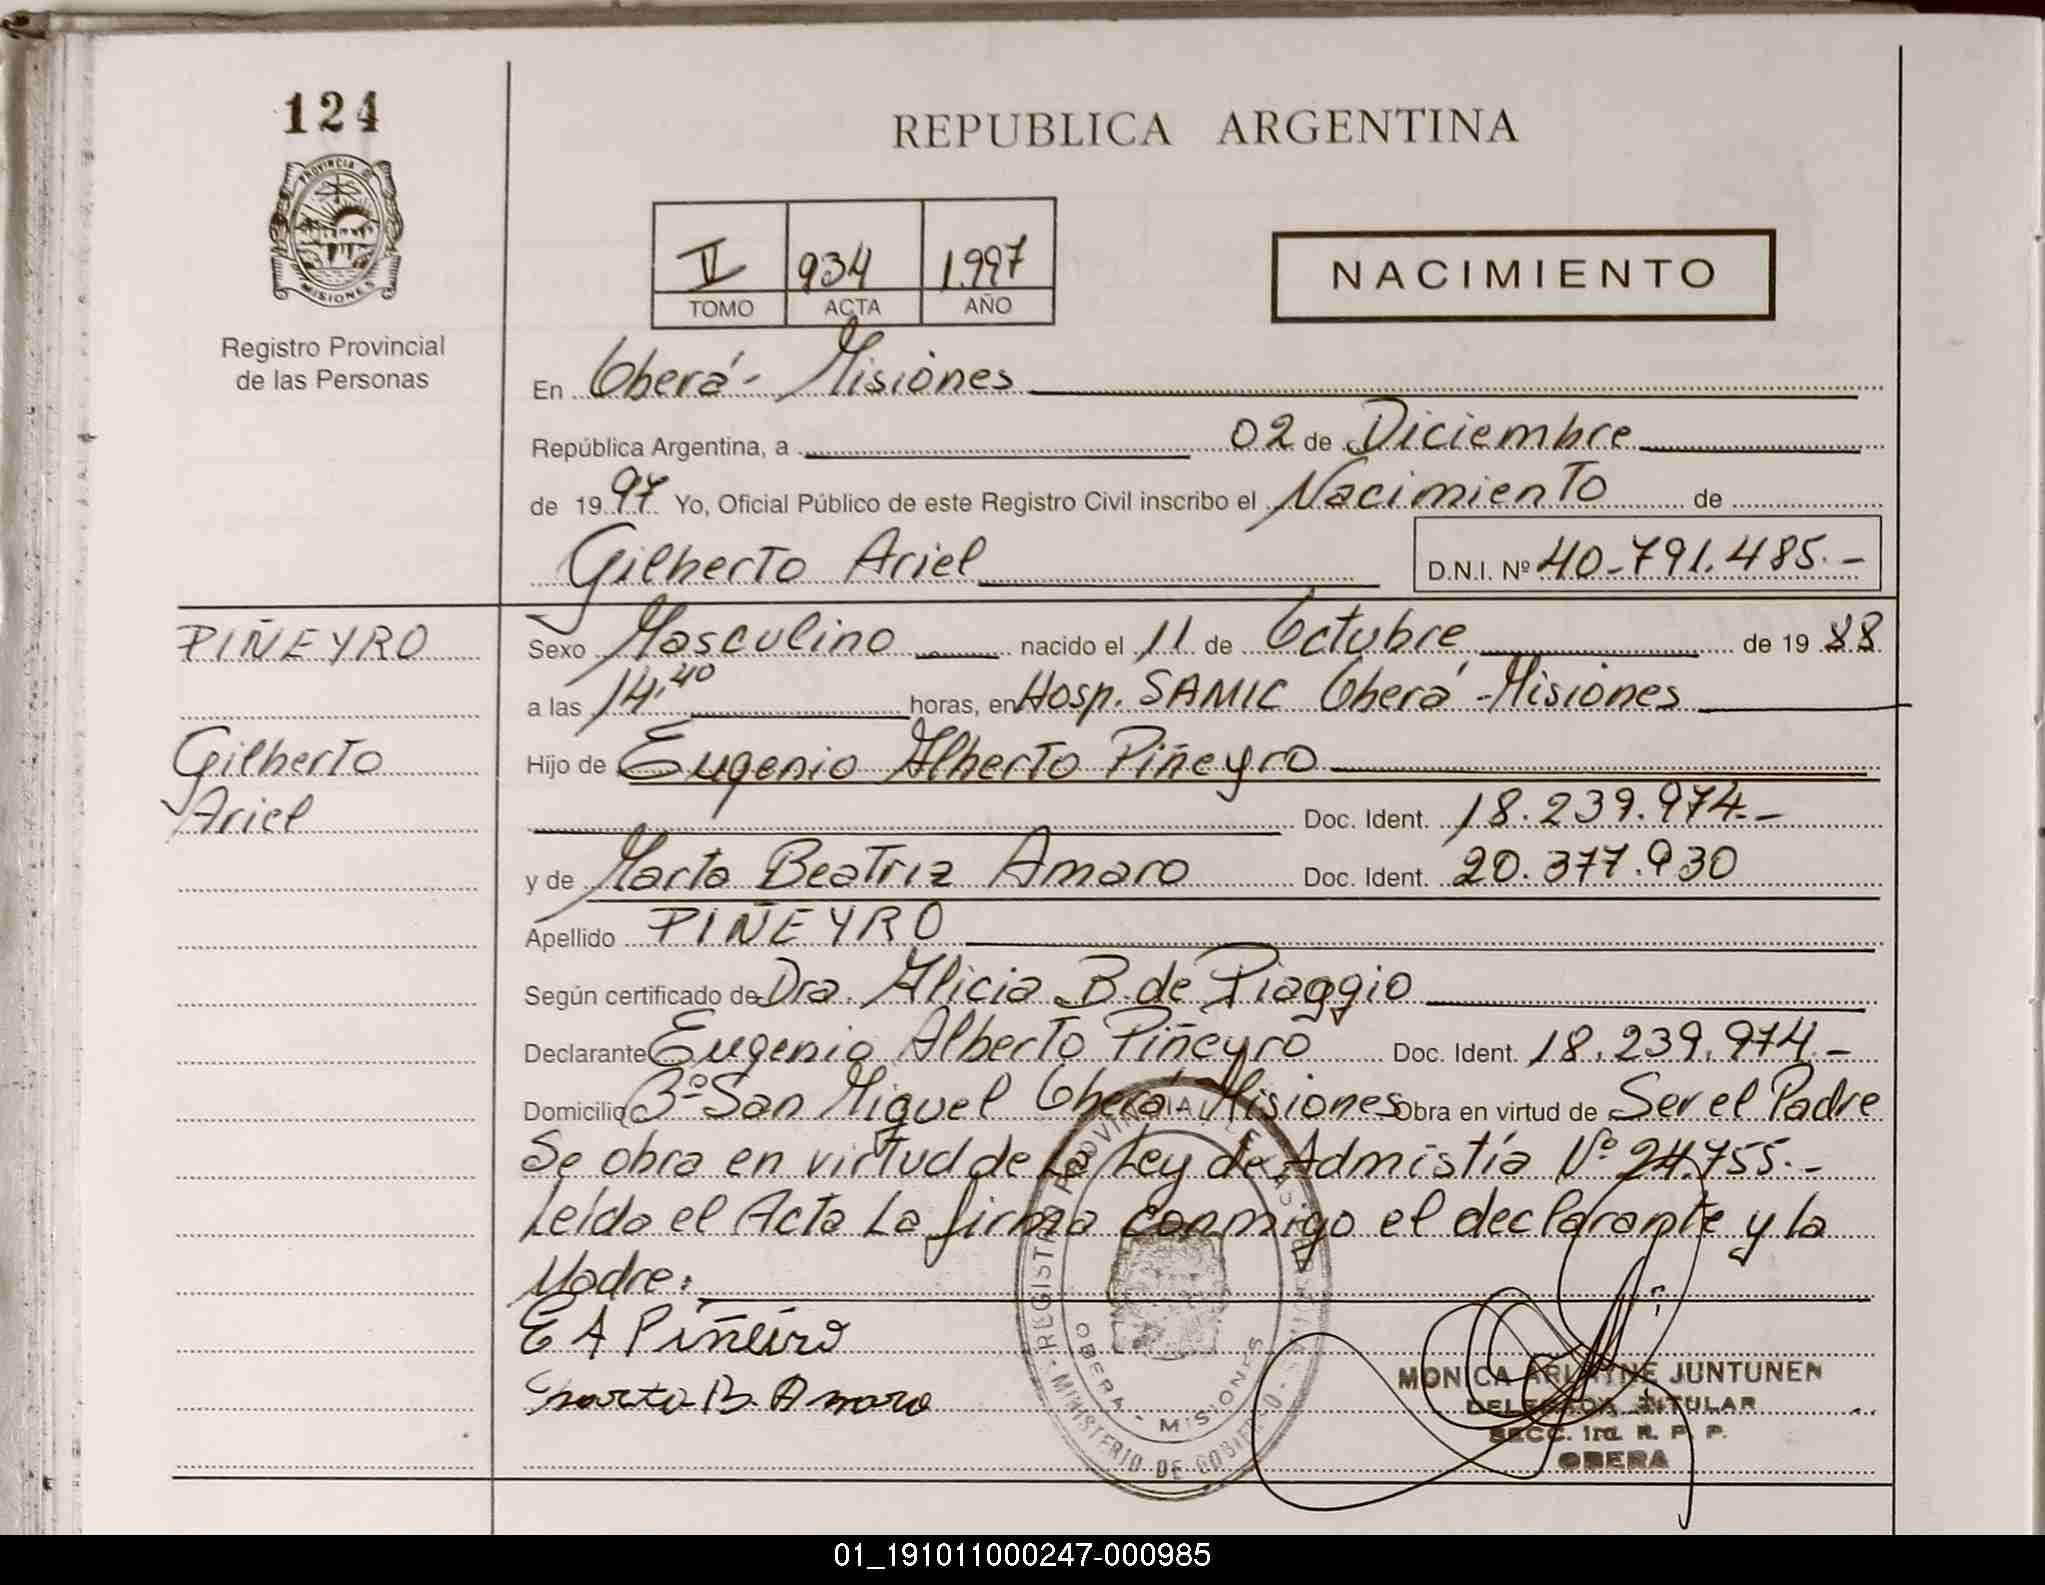 124
PROVINCIA DE
MISIONES
Registro Provincial
de las Personas
REPUBLICA ARGENTINA
II 934 1.997
TOMO ACTA AÑO
NACIMIENTO
En Oberá - Misiones
República Argentina, a 02 de Diciembre
de 1997 Yo, Oficial Público de este Registro Civil inscribo el Nacimiento de
Gilberto Ariel D.N.I. Nº 40-791.485.-
PIÑEYRO
Gilberto
Ariel
Sexo Masculino nacido el 11 de Octubre de 1988
a las 14,40 horas, en Hosp. SAMIC Oberá - Misiones
Hijo de Eugenio Alberto Piñeyro
Doc. Ident. 18.239.974.-
y de Marta Beatriz Amaro Doc. Ident. 20.377.930
Apellido PIÑEYRO
Según certificado de Dra. Alicia B. de Piaggio
Declarante Eugenio Alberto Piñeyro Doc. Ident. 18.239.974.-
Domicilio Bº San Miguel Oberá Misiones Obra en virtud de Ser el Padre
Se obra en virtud de la Ley de Admistía Nº 24.755.-
Leída el Acta La firma conmigo el declarante y la
Madre:
E A Piñeiro
Marta B. Amaro
REGISTRO PROVINCIAL DE LAS PERSONAS
MINISTERIO DE GOBIERNO
OBERA - MISIONES
MONICA ARIAYNE JUNTUNEN
DELEGADA TITULAR
SECC. 1ra. R. P. P.
OBERA
01_191011000247-000985